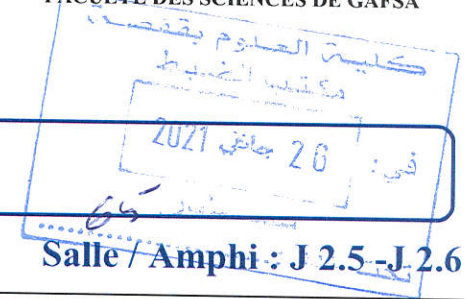 FACULTÉ DES SCIENCES DE GAFSA
كلية العلوم بقفصة
مكتب الضبط
26 جانفي 2021
في :
Salle / Amphi : J 2.5 -J 2.6